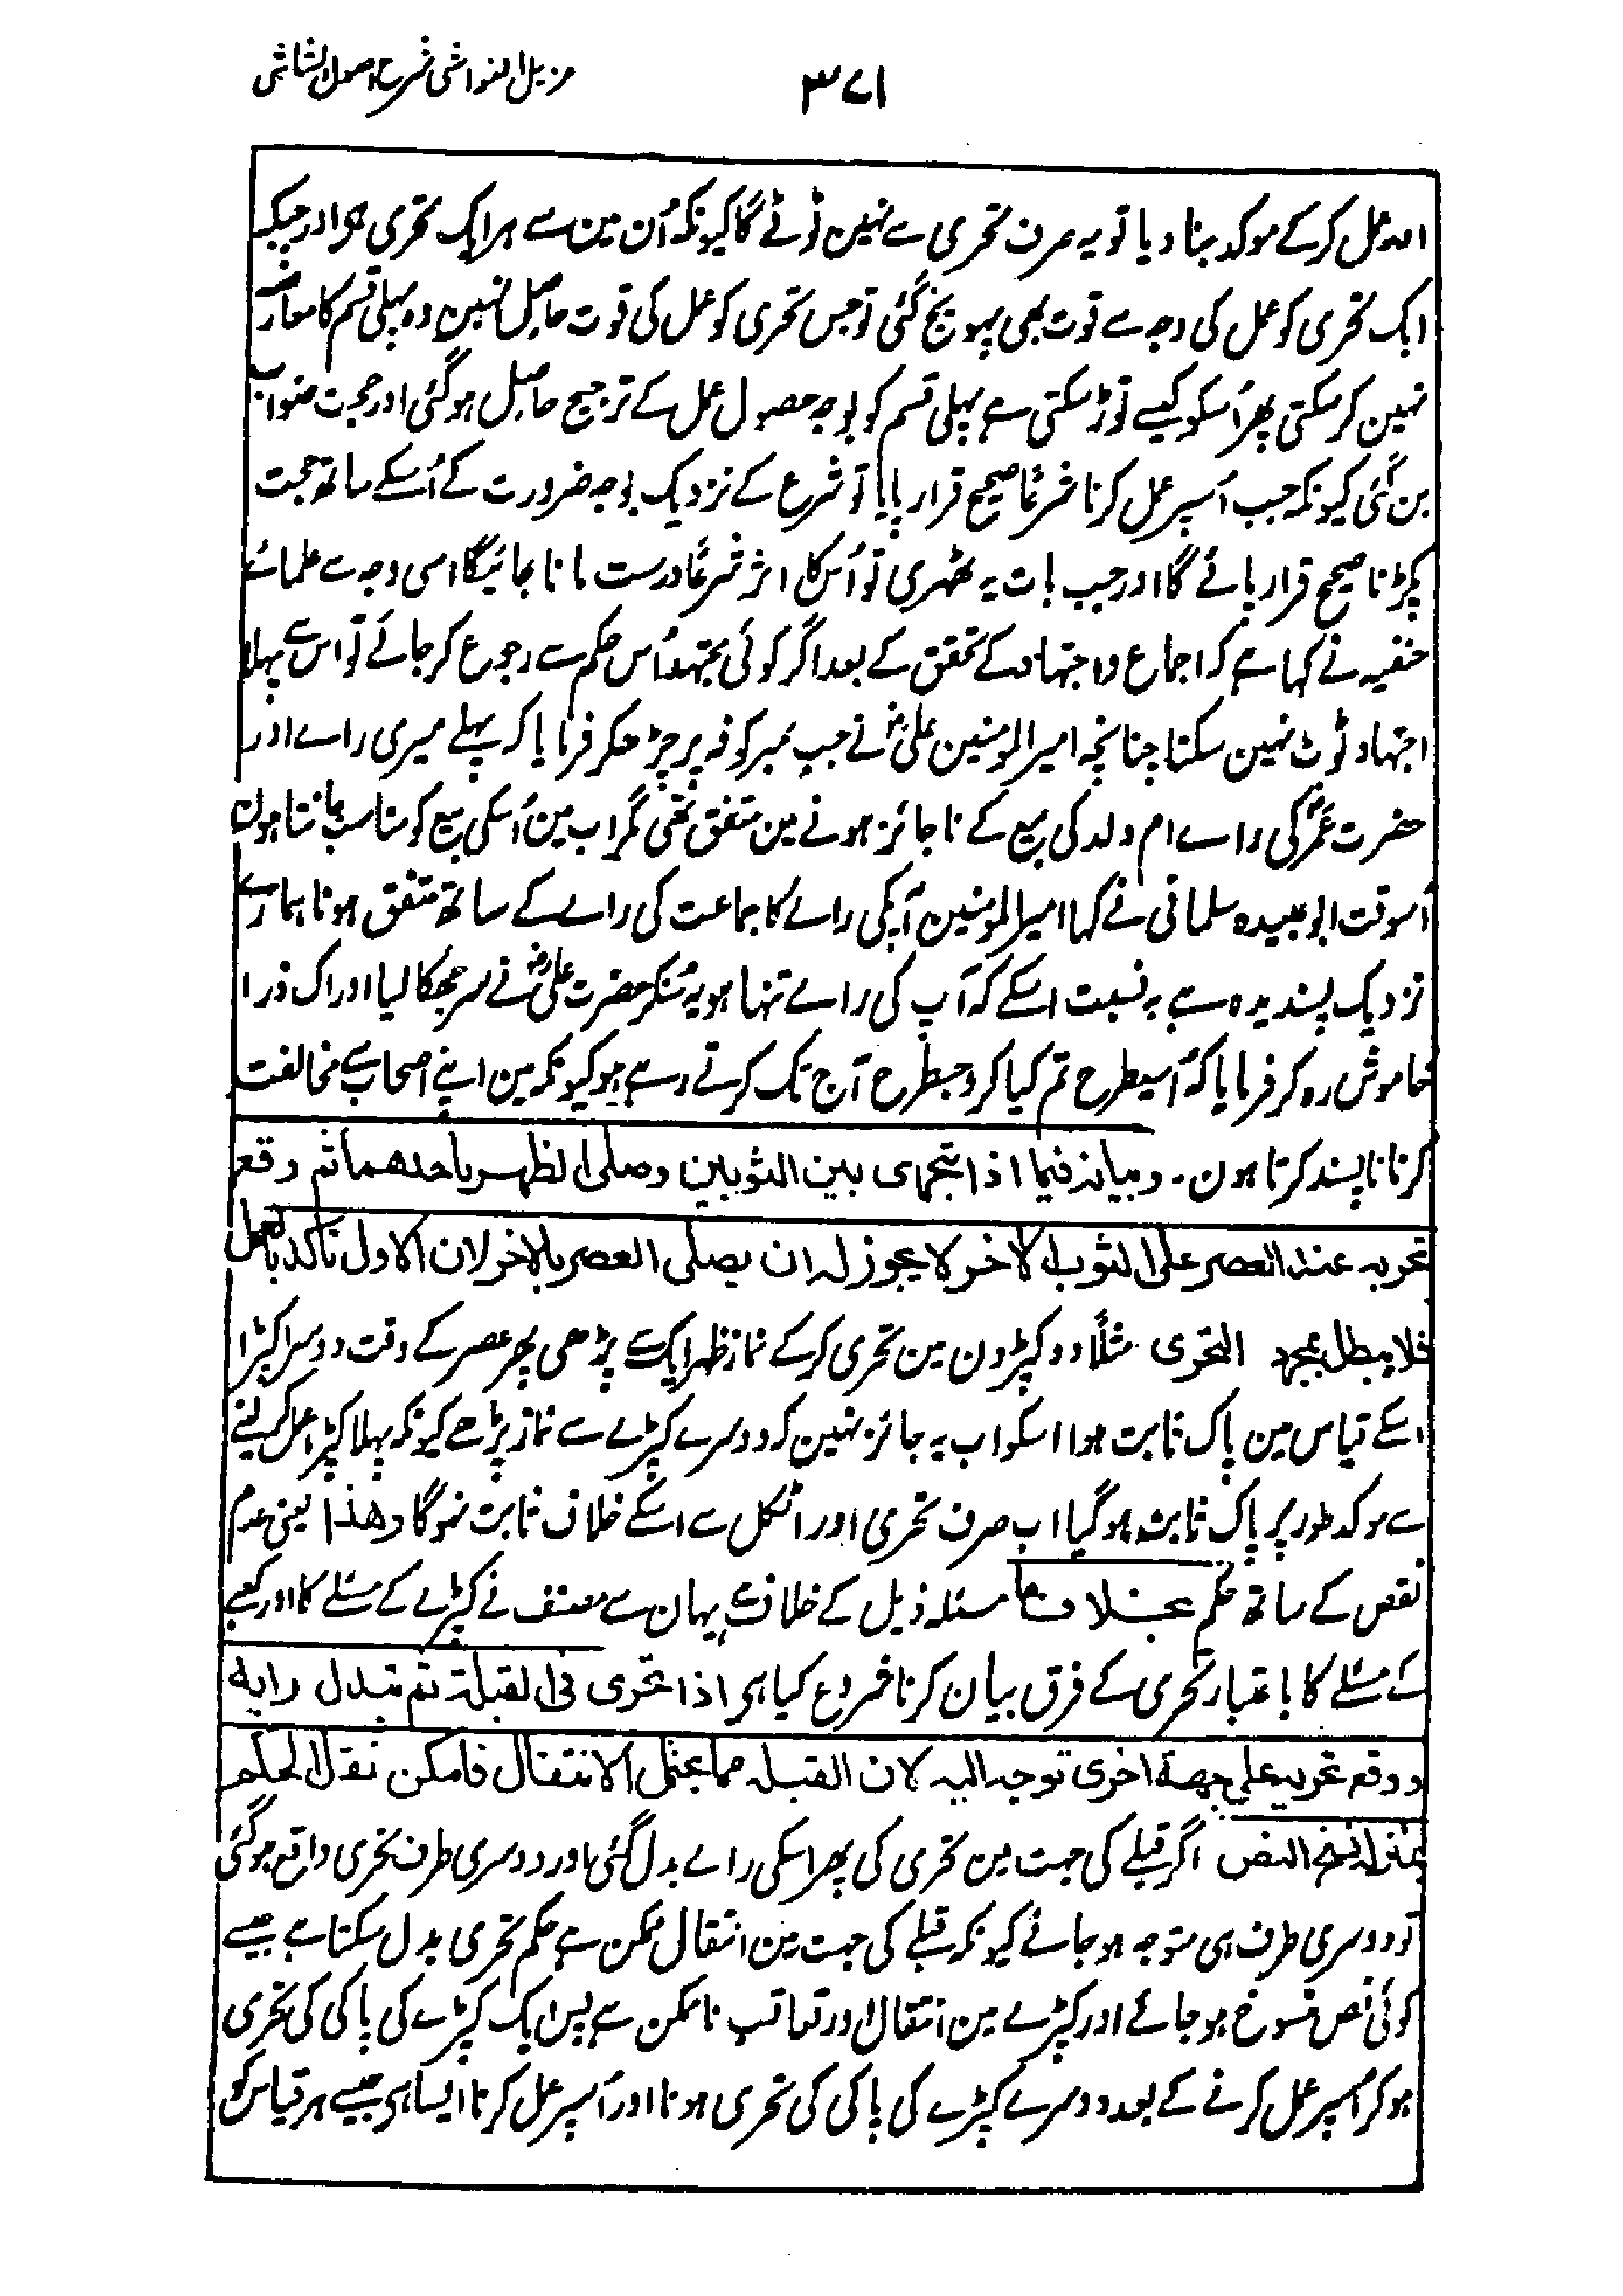 مزیل الغواشی شرح اصول الشاشی
۳۷۱
اور عمل کرکے موکد بنا دیا تو یہ صرف تحری سے نہین ٹوٹے گا کیونکہ اُن مین سے ہر ایک تحری ہو اور جبکہ
ایک تحری کو عمل کی وجہ سے قوت بھی پہونچ گئی تو جس تحری کو عمل کی قوت حاصل نہین وہ پہلی قسم کا معارضہ
نہین کر سکتی پھر اُسکو کیسے توڑ سکتی ہے پہلی قسم کو بوجہ حصول عمل کے ترجیح حاصل ہو گئی اور حجت صواب
بن گئی کیونکہ جب اُسپر عمل کرنا شرعًا صحیح قرار پایا تو شرع کے نزدیک بوجہ ضرورت کے اُسکے ساتھ حجت
پکڑنا صحیح قرار پائے گا اور جب بات یہ ٹھہری تو اُس کا اثر شرعًا درست مانا جائیگا اسی وجہ سے علمائے
حنفیہ نے کہا ہے کہ اجماع و اجتہاد کے تحقق کے بعد اگر کوئی مجتہد اُس حکم سے رجوع کر جائے تو اس سے پہلا
اجتہاد ٹوٹ نہین سکتا چنانچہ امیر المومنین علیؓ نے جب ممبر کوفہ پر چڑھکر فرمایا کہ پہلے میری راے اور
حضرت عمرؓ کی راے ام ولد کی بیع کے ناجائز ہونے مین متفق تھی مگر اب مین اُسکی بیع کو مناسب جانتا ہون
اُسوقت ابو عبیدہ سلمانی نے کہا امیر المومنین آپکی راے کا جماعت کی راے کے ساتھ متفق ہونا ہمارے
نزدیک پسندیدہ ہے بہ نسبت اسکے کہ آپ کی راے تنہا ہو یہ سُنکر حضرت علیؓ نے سر جھکا لیا اور اک ذرا
خاموش رہ کر فرمایا کہ اُسیطرح تم کیا کرو جسطرح آج تک کرتے رہے ہو کیونکہ مین اپنے اصحاب سے مخالفت
کرنا ناپسند کرتا ہون۔ وبیانہ فیما اذا تحری بین الثوبین وصلی الظہر باحدھما ثم وقع
تحریہ عند العصر علی الثوب الاخر لا یجوز لہ ان یصلی العصر بالاخر لان الاول تاکد بالعمل
فلا یبطل بمجرد التحری مثلًا دو کپڑون مین تحری کرکے نماز ظہر ایک سے پڑھی پھر عصر کے وقت دوسرا کپڑا
اسکے قیاس مین پاک ثابت ہوا اسکو اب یہ جائز نہین کہ دوسرے کپڑے سے نماز پڑھے کیونکہ پہلا کپڑا عمل کرلینے
سے موکد طور پر پاک ثابت ہو گیا اب صرف تحری اور اٹکل سے اسکے خلاف ثابت نہوگا وھذا یعنی عدم
نقص کے ساتھ حکم بخلاف ما مسئلہ ذیل کے خلاف ہے یہان سے مصنف نے کپڑے کے مسئلے کا اور کعبے
کے مسئلے کا باعتبار تحری کے فرق بیان کرنا شروع کیا ہو اذا تحری فی القبلۃ ثم تبدل رایہ
ووقع تحریہ علی جھۃ اخری توجہ الیہ لان القبلہ مما یحتمل الانتقال فامکن نقل الحکم
بمنزلۃ نسخ النص اگر قبلے کی جہت مین تحری کی پھر اسکی راے بدل گئی اور دوسری طرف تحری واقع ہو گئی
تو دوسری طرف ہی متوجہ ہو جائے کیونکہ قبلے کی جہت مین انتقال ممکن ہے حکم تحری بدل سکتا ہے جیسے
کوئی نص منسوخ ہو جائے اور کپڑے مین انتقال اور تعاقب ناممکن ہے پس ایک کپڑے کی پاکی کی تحری
ہو کر اُسپر عمل کرنے کے بعد دوسرے کپڑے کی پاکی کی تحری ہونا اور اُسپر عمل کرنا ایسا ہی جیسے ہر قیاس کو